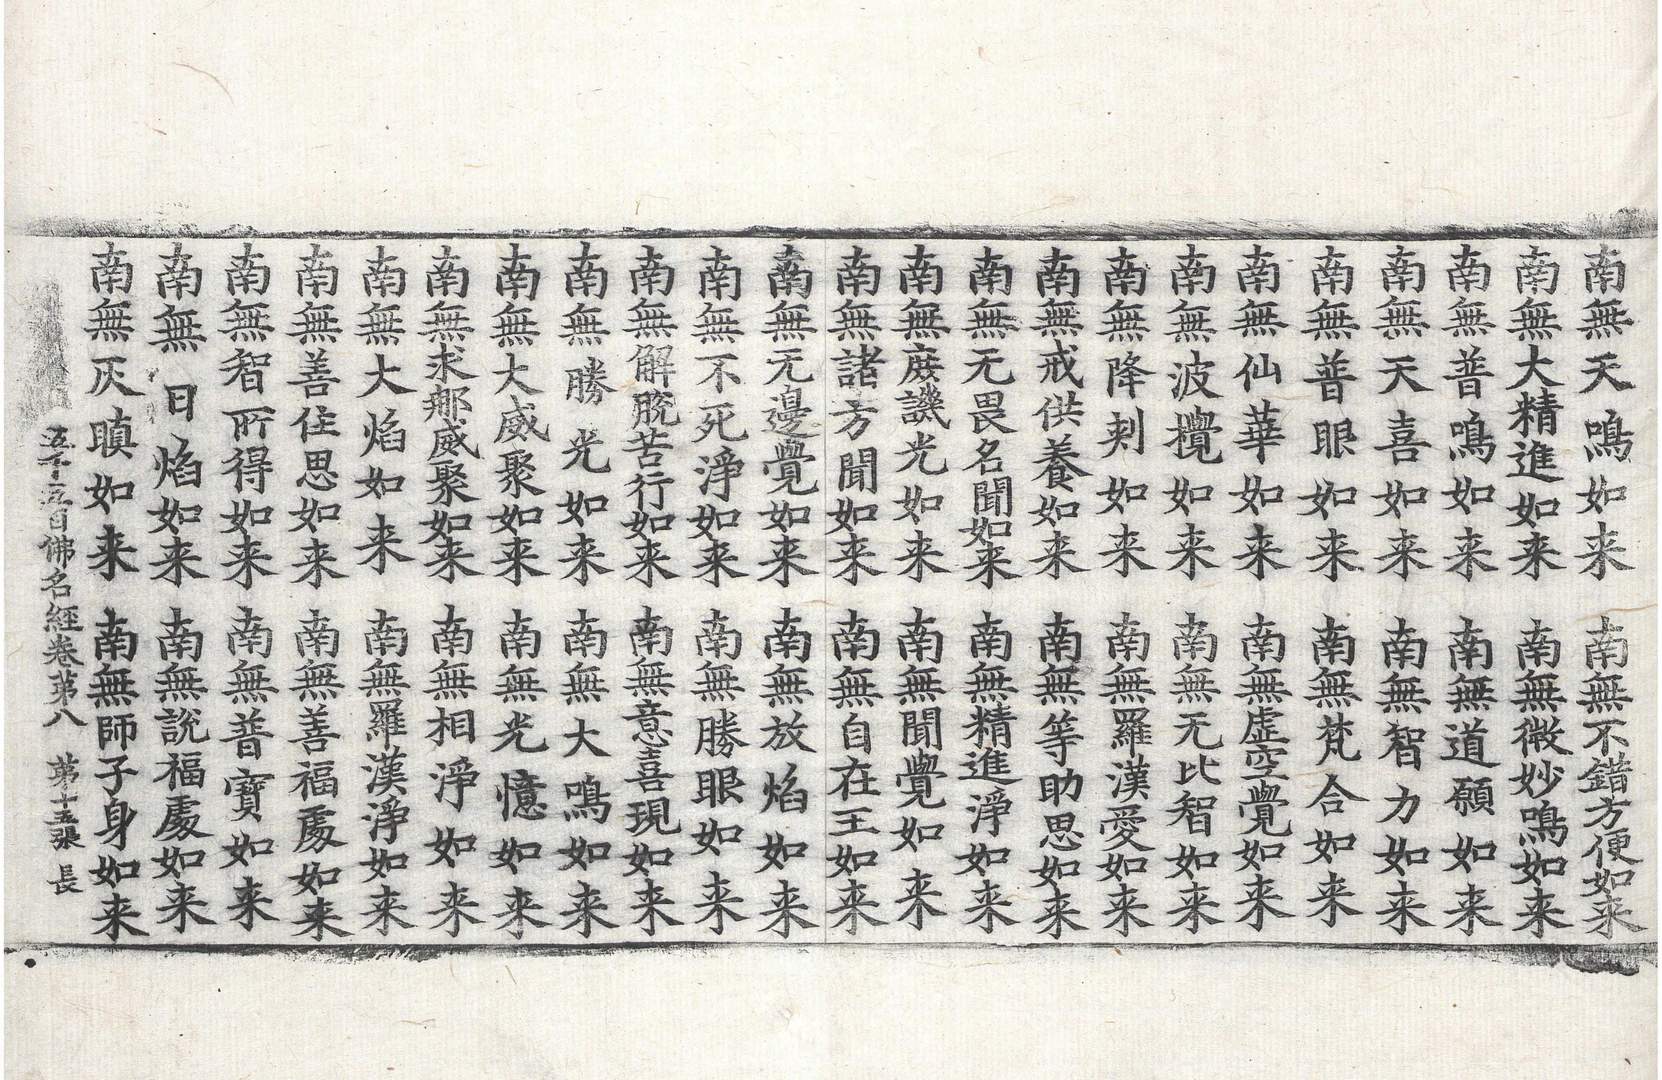 南無天鳴如来 南無不錯方便如来
南無大精進如来 南無微妙鳴如来
南無普鳴如来 南無道願如来
南無天喜如来 南無智力如来
南無普眼如来 南無梵合如来
南無仙華如来 南無虛空覺如来
南無波攪如来 南無无比智如来
南無降刺如来 南無羅漢愛如来
南無戒供養如来 南無等助思如来
南無无畏名聞如来 南無精進淨如来
南無度譏光如来 南無聞覺如来
南無諸方聞如来 南無自在王如来
南無无邊覺如来 南無放焰如来
南無不死淨如来 南無勝眼如来
南無解脫苦行如来 南無意喜現如来
南無勝光如来 南無大鳴如来
南無大威聚如来 南無光憶如来
南無求那威聚如来 南無相淨如来
南無大焰如来 南無羅漢淨如来
南無善住思如来 南無善福處如来
南無智所得如来 南無普寶如来
南無日焰如来 南無說福處如来
南無灰瞋如来 南無師子身如来
五千五百佛名經卷第八 第十五張 長